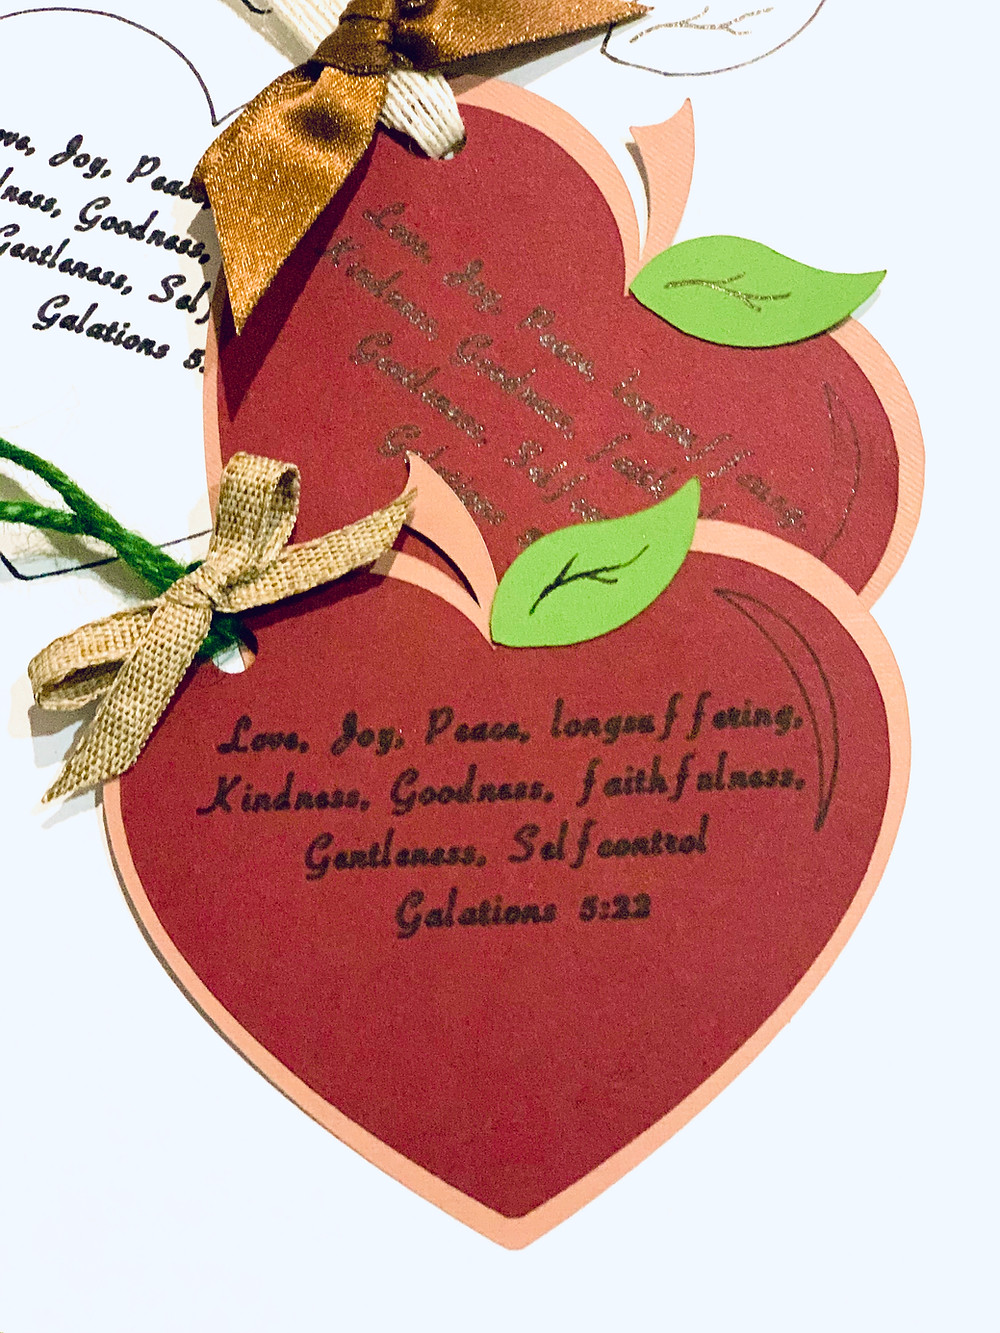 Joy, Peace,
Goodness,
Gentleness, Self
Galations 5:
Love, Joy, Peace, longsuffering,
Kindness, Goodness, faith
Gentleness, Self
Galations
Love, Joy, Peace, longsuffering,
Kindness, Goodness, faithfulness,
Gentleness, Selfcontrol
Galations 5:22